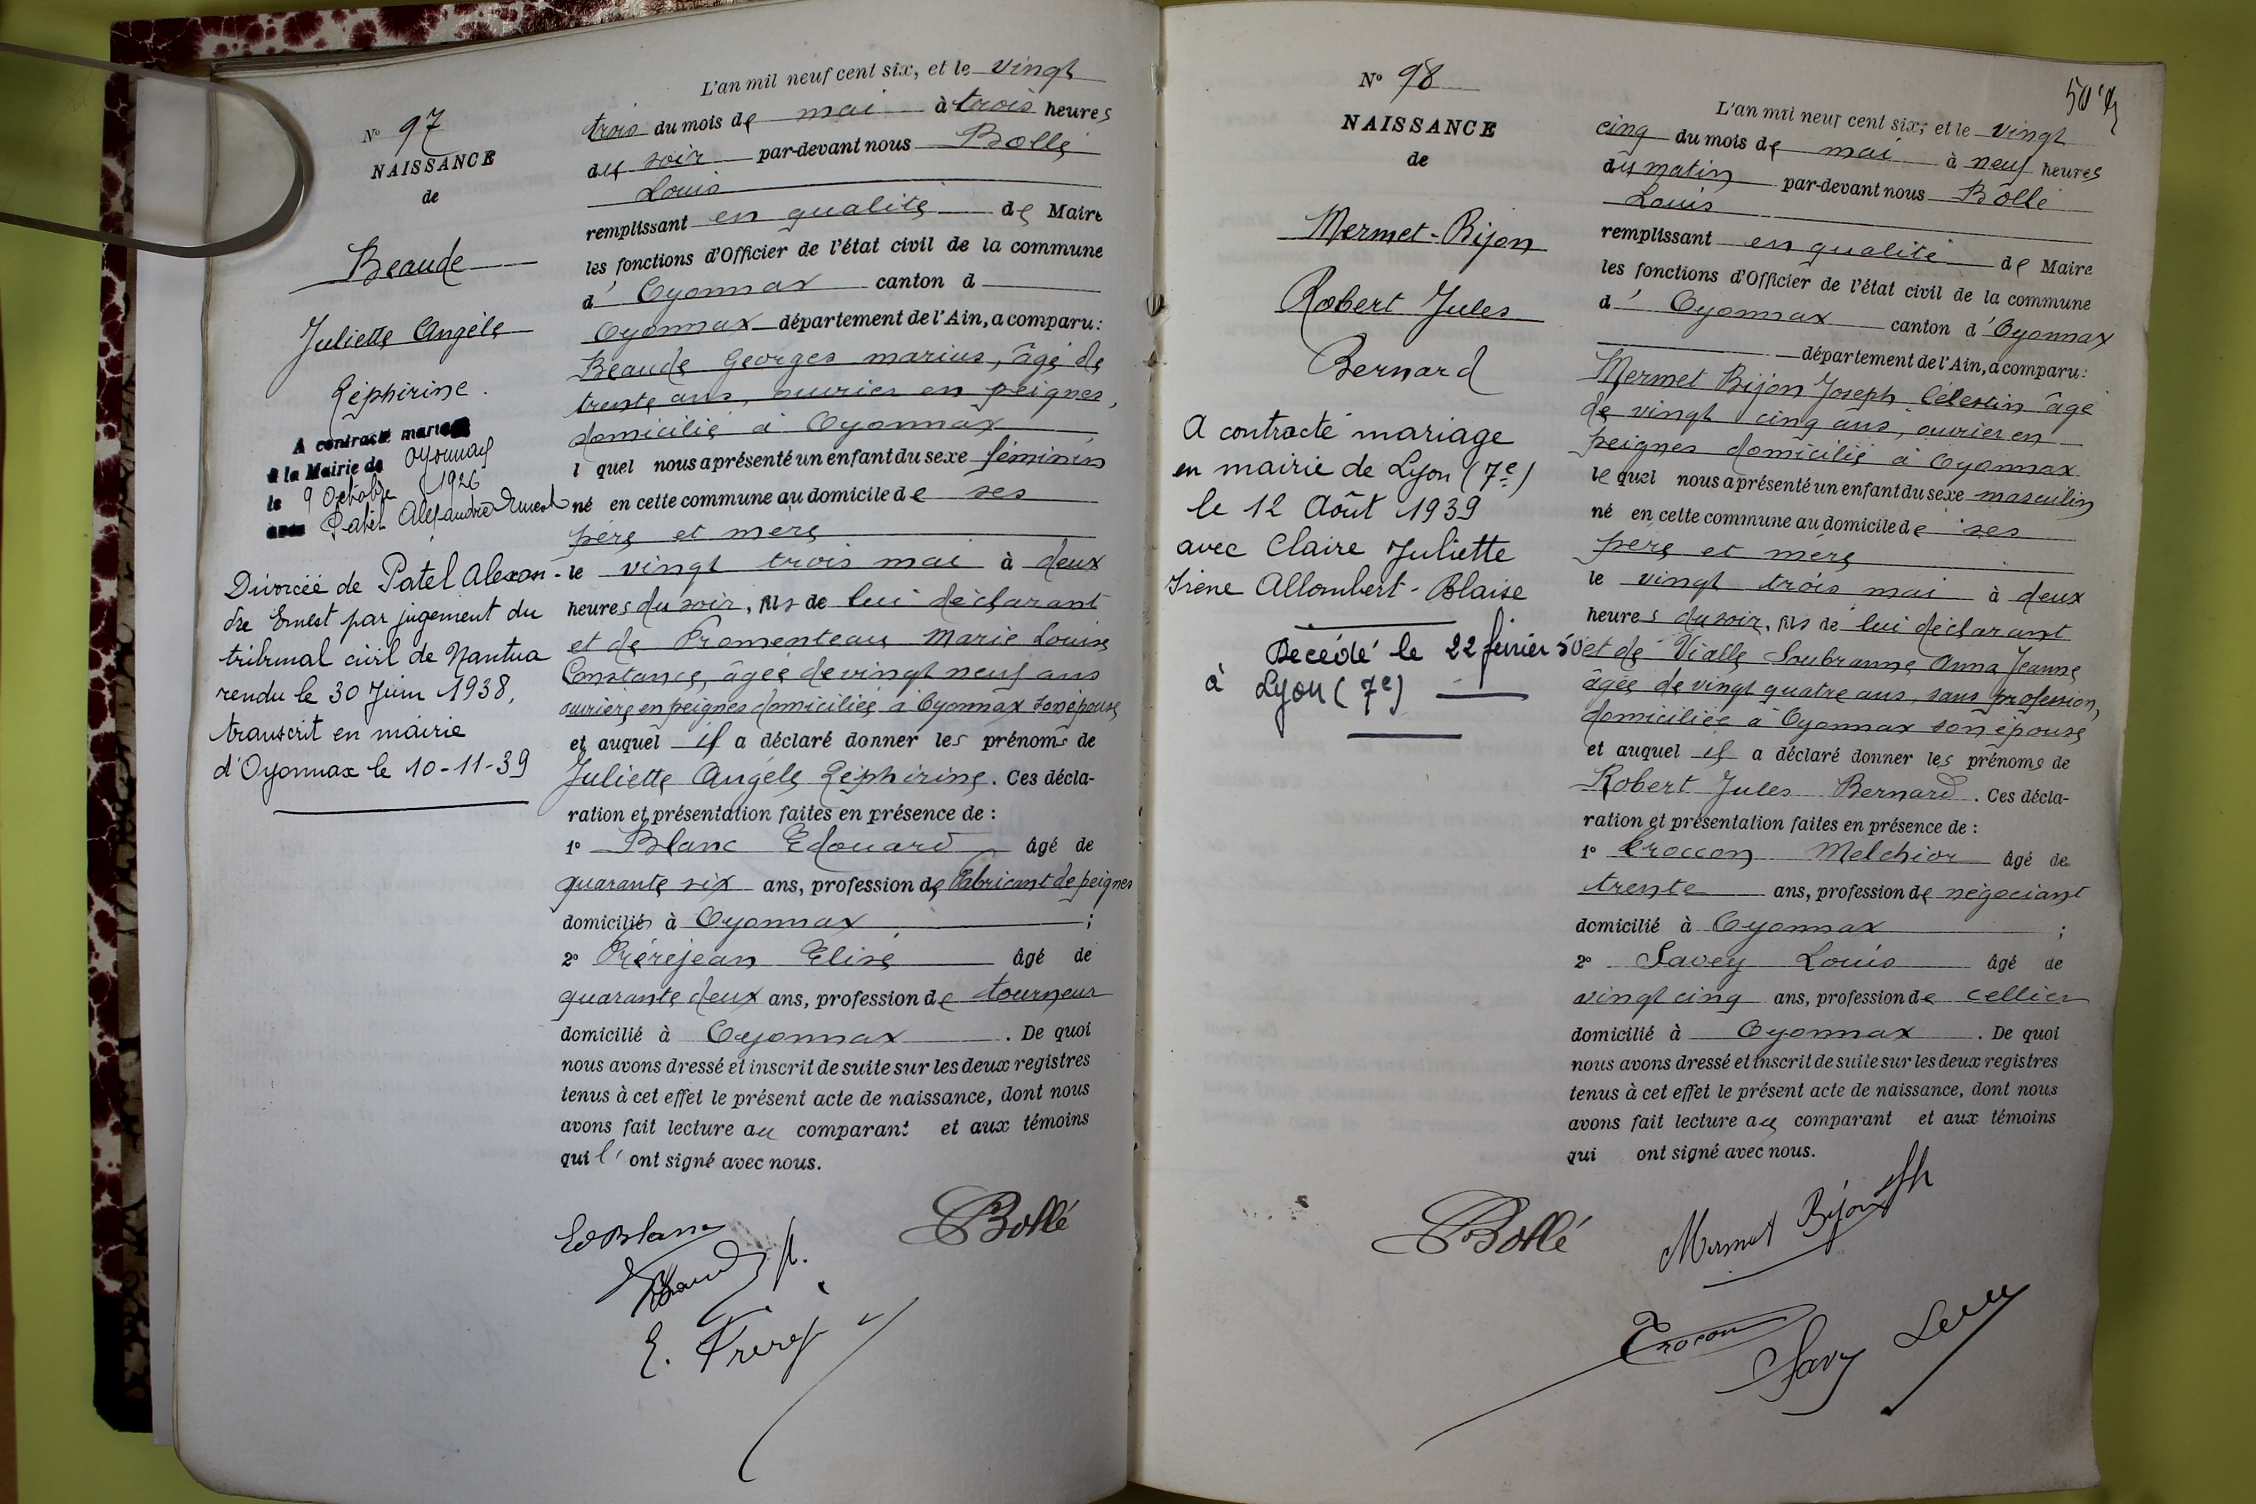 N° 97
NAISSANCE
de
Beaude
Juliette Angèle
Zéphirine.
A contracté mariage
à la Mairie de Oyonnax
le 9 Octobre 1926
avec Patel Alexandre Ernest
Divorcée de Patel Alexan-
dre Ernest par jugement du
tribunal civil de Nantua
rendu le 30 Juin 1938,
transcrit en mairie
d'Oyonnax le 10-11-39
L'an mil neuf cent six, et le vingt
trois du mois de mai à trois heures
du soir par-devant nous Bollé
Louis
remplissant en qualité de Maire
les fonctions d'Officier de l'état civil de la commune
d' Oyonnax canton d
Oyonnax département de l'Ain, a comparu:
Beaude Georges Marius, âgé de
trente ans, ouvrier en peignes,
domicilié à Oyonnax
l quel nous a présenté un enfant du sexe féminin
né en cette commune au domicile de ses
père et mère
le vingt trois mai à deux
heures du soir, fils de lui déclarant
et de Promenteau Marie Louise
Constance, âgée de vingt neuf ans
ouvrière en peignes domiciliée à Oyonnax son épouse
et auquel il a déclaré donner les prénoms de
Juliette Angèle Zéphirine. Ces décla-
ration et présentation faites en présence de :
1° Blanc Edouard âgé de
quarante six ans, profession de fabricant de peignes
domicilié à Oyonnax ;
2° Frèrejean Elisé âgé de
quarante deux ans, profession de tourneur
domicilié à Oyonnax. De quoi
nous avons dressé et inscrit de suite sur les deux registres
tenus à cet effet le présent acte de naissance, dont nous
avons fait lecture au comparant et aux témoins
qui l' ont signé avec nous.
Ed Blanc
Bollé
E. Frerej
50
N° 98
NAISSANCE
de
Mermet-Bijon
Robert Jules
Bernard
A contracté mariage
en mairie de Lyon (7e)
le 12 Août 1939
avec Claire Juliette
Irène Allombert-Blaise
Décédé le 22 février 50
à Lyon (7e)
L'an mil neuf cent six, et le vingt
cinq du mois de mai à neuf heures
du matin par-devant nous Bollé
Louis
remplissant en qualité de Maire
les fonctions d'Officier de l'état civil de la commune
d' Oyonnax canton d'Oyonnax
département de l'Ain, a comparu:
Mermet Bijon Joseph Célestin âgé
de vingt cinq ans, ouvrier en
peignes domicilié à Oyonnax
lequel nous a présenté un enfant du sexe masculin
né en cette commune au domicile de ses
père et mère
le vingt trois mai à deux
heures du soir, fils de lui déclarant
et de Vialle Anna Jeanne
âgée de vingt quatre ans, sans profession,
domiciliée à Oyonnax son épouse
et auquel il a déclaré donner les prénoms de
Robert Jules Bernard. Ces décla-
ration et présentation faites en présence de :
1° Croccon Melchior âgé de
trente ans, profession de négociant
domicilié à Oyonnax ;
2° Savey Louis âgé de
vingt cinq ans, profession de cellier
domicilié à Oyonnax. De quoi
nous avons dressé et inscrit de suite sur les deux registres
tenus à cet effet le présent acte de naissance, dont nous
avons fait lecture au comparant et aux témoins
qui ont signé avec nous.
Bollé
Mermet Bijon